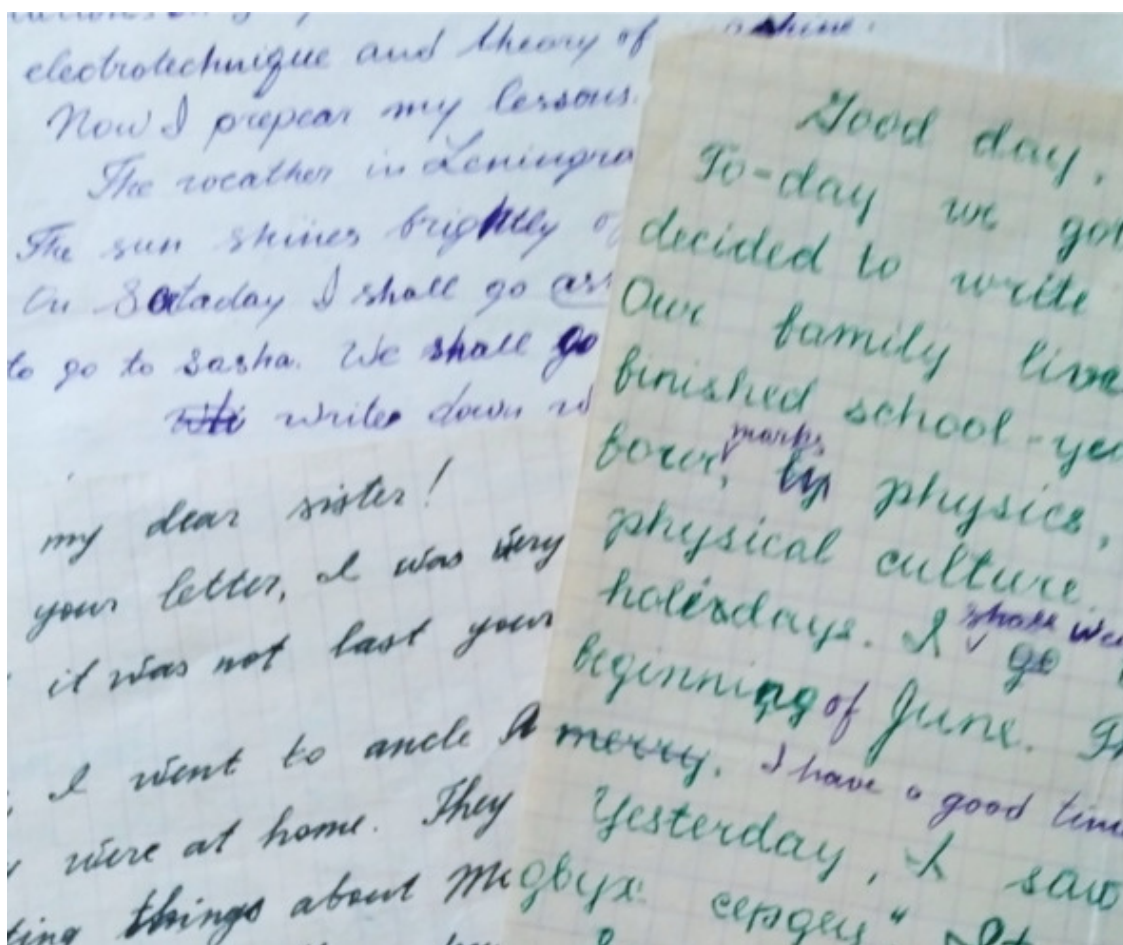 electrotechnique and theory of
Now I prepear my lessons.
The weather in Leningra
The sun shines brightly of
On Sataday I shall go
to go to Sasha. We shall go
write down
my dear sister!
your letter, I was very
it was not last your
I went to ancle A
were at home. They
ting things about M
Good day.
To-day we got
decided to write
Our family live
finished school-yea
four, marks by physics,
physical culture.
holesdays. I shall we go
beginning of June. Th
merry. I have a good time
Yesterday, I saw
двух сердец"